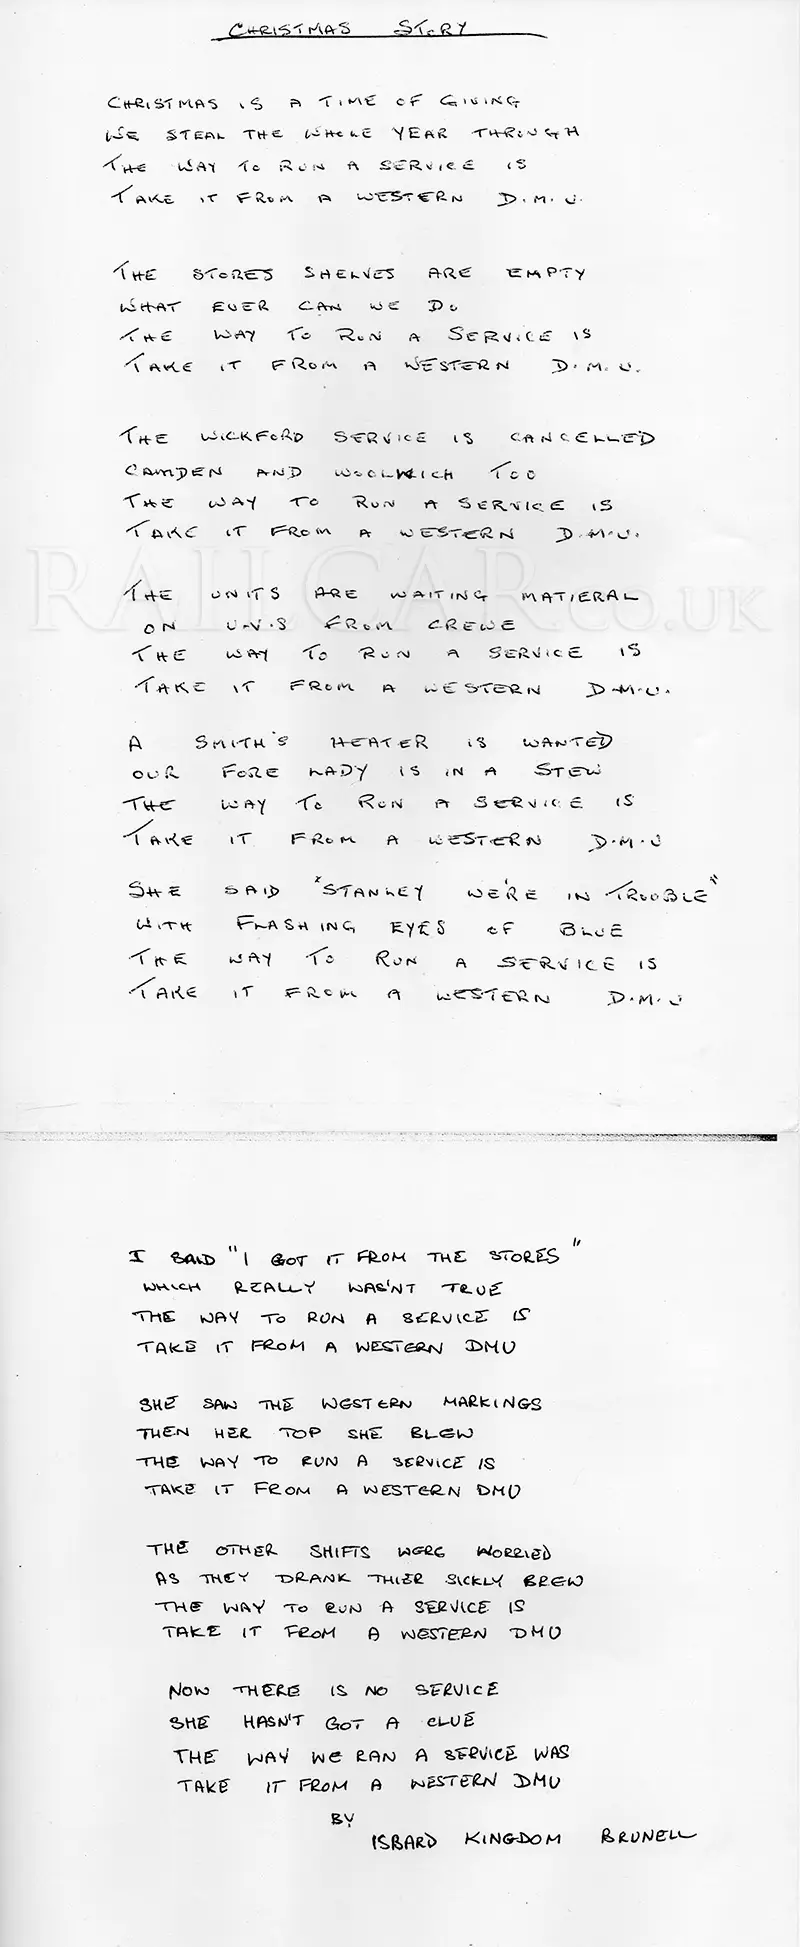 CHRISTMAS STORY
CHRISTMAS IS A TIME OF GIVING
WE STEAL THE WHOLE YEAR THROUGH
THE WAY TO RUN A SERVICE IS
TAKE IT FROM A WESTERN D.M.U.
THE STORES SHELVES ARE EMPTY
WHAT EVER CAN WE DO
THE WAY TO RUN A SERVICE IS
TAKE IT FROM A WESTERN D.M.U.
THE WICKFORD SERVICE IS CANCELLED
CAMDEN AND WOOLWICH TOO
THE WAY TO RUN A SERVICE IS
TAKE IT FROM A WESTERN D.M.U.
RAILCAR.CO.UK
THE UNITS ARE WAITING MATIERAL
ON U.V.S FROM CREWE
THE WAY TO RUN A SERVICE IS
TAKE IT FROM A WESTERN D.M.U.
A SMITH'S HEATER IS WANTED
OUR FORE LADY IS IN A STEW
THE WAY TO RUN A SERVICE IS
TAKE IT FROM A WESTERN D.M.U
SHE SAID "STANLEY WE'RE IN TROUBLE"
WITH FLASHING EYES OF BLUE
THE WAY TO RUN A SERVICE IS
TAKE IT FROM A WESTERN D.M.U
I SAID "I GOT IT FROM THE STORES"
WHICH REALLY WAS'NT TRUE
THE WAY TO RUN A SERVICE IS
TAKE IT FROM A WESTERN DMU
SHE SAW THE WESTERN MARKINGS
THEN HER TOP SHE BLEW
THE WAY TO RUN A SERVICE IS
TAKE IT FROM A WESTERN DMU
THE OTHER SHIFTS WERE WORRIED
AS THEY DRANK THIER SICKLY BREW
THE WAY TO RUN A SERVICE IS
TAKE IT FROM A WESTERN DMU
NOW THERE IS NO SERVICE
SHE HASN'T GOT A CLUE
THE WAY WE RAN A SERVICE WAS
TAKE IT FROM A WESTERN DMU
BY
ISBARD KINGDOM BRUNELL